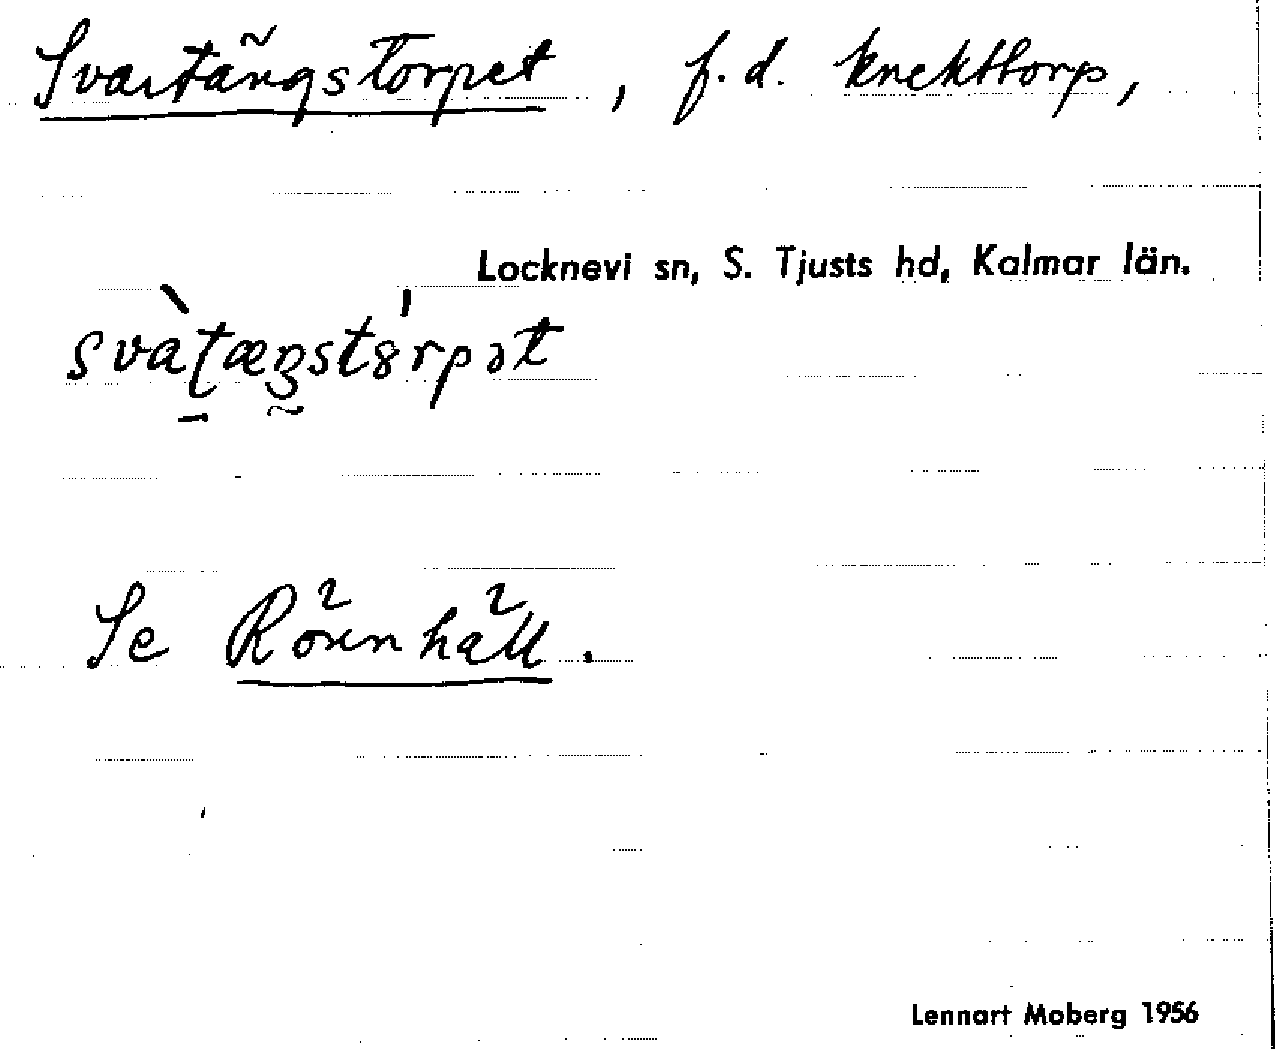 Svartängstorpet, f.d. knekttorp,
Locknevi sn, S. Tjusts hd, Kalmar län.
Se Rörnhäll.
Lennart Moberg 1956